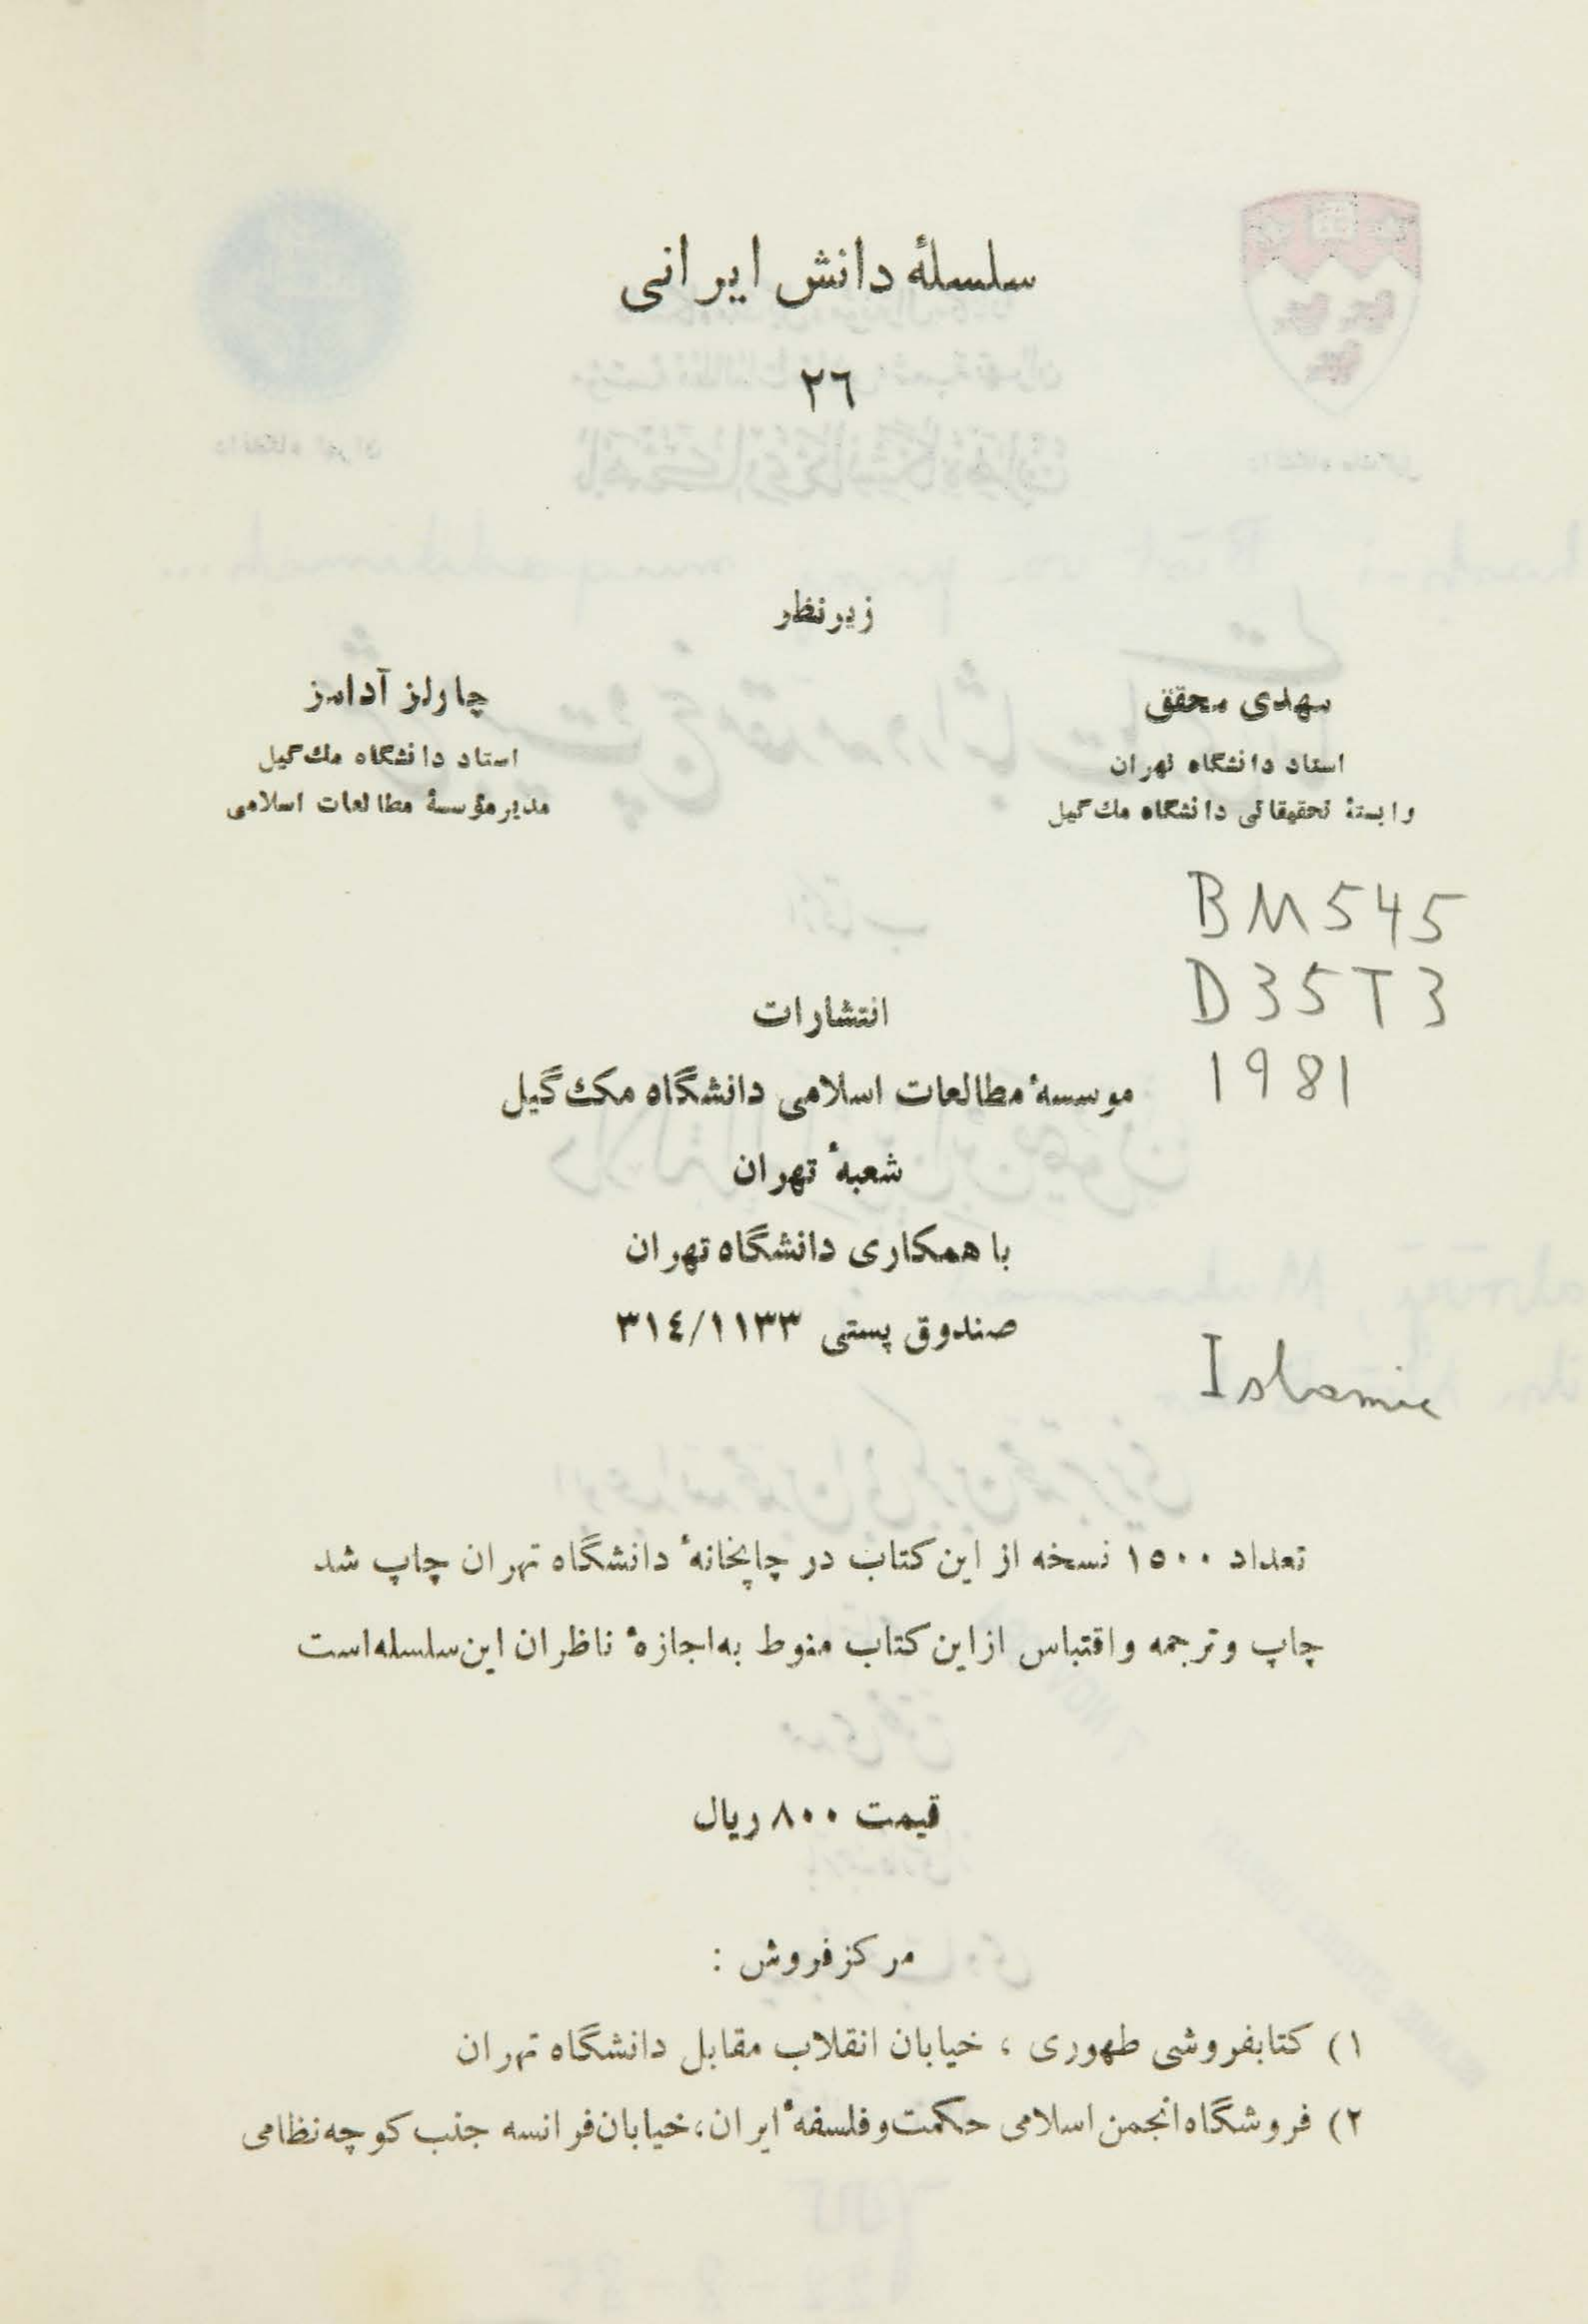 سلسلهٔ دانش ایرانی
۲٦
زیرنظر
مهدی محقق
استاد دانشگاه تهران
وابستهٔ تحقیقاتی دانشگاه مك‌گیل
چارلز آدامز
استاد دانشگاه مك‌گیل
مدیر مؤسسهٔ مطالعات اسلامی
BM545
D35T3
1981
انتشارات
موسسهٔ مطالعات اسلامی دانشگاه مک‌گیل
شعبهٔ تهران
با همکاری دانشگاه تهران
صندوق پستی ۳۱٤/۱۱۳۳
Islamic
تعداد ۱۵۰۰ نسخه از این کتاب در چاپخانهٔ دانشگاه تهران چاپ شد
چاپ و ترجمه و اقتباس از این کتاب منوط به اجازهٔ ناظران این سلسله است
قیمت ۸۰۰ ریال
مرکز فروش :
۱) کتابفروشی طهوری ، خیابان انقلاب مقابل دانشگاه تهران
۲) فروشگاه انجمن اسلامی حکمت و فلسفهٔ ایران، خیابان فرانسه جنب کوچه نظامی